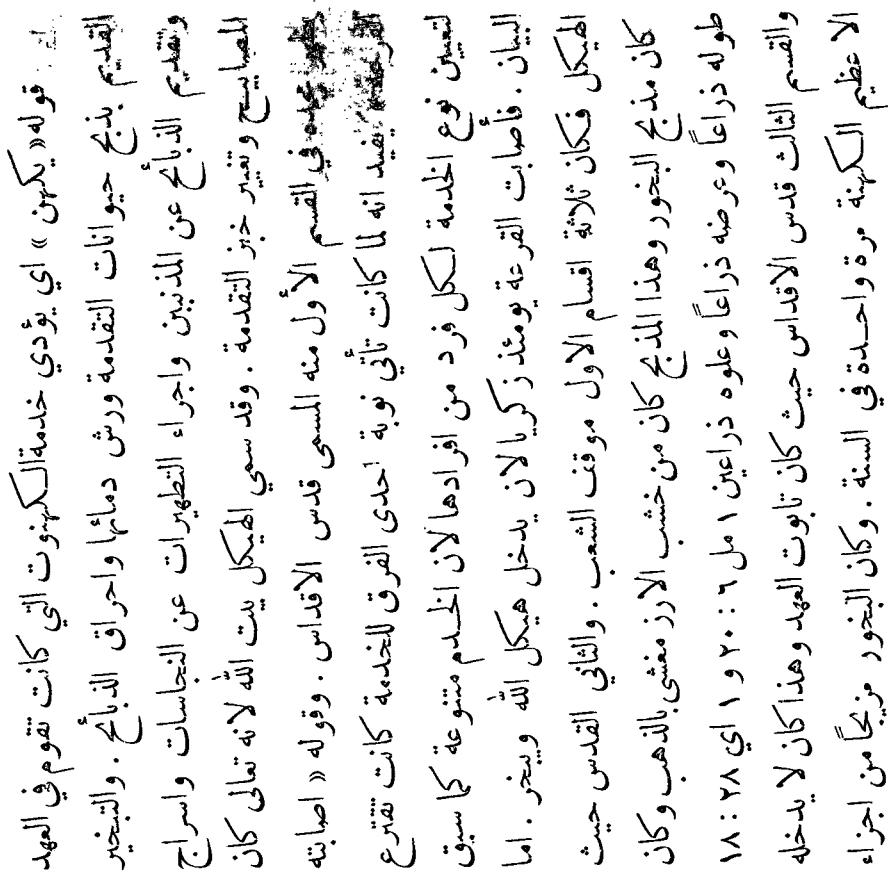 قوله « يكهن » اي يؤدي خدمة الكهنوت التي كانت تقوم في العهد
القديم بذبح حيوانات التقدمة ورش دمائها واحراق الذبائح . والتبخير
وتقديم الذبائح عن المذنبين واجراء التطهيرات عن النجاسات واسراج
المصابيح وتغيير خبز التقدمة . وقد سمي الهيكل بيت الله لانه تعالى كان
يظهر مجده في القسم الأول منه المسمى قدس الاقداس . وقوله « اصابته
القرعة » يفيد انه لما كانت تأتي نوبة احدى الفرق للخدمة كانت تقترع
لتعيين نوع الخدمة لكل فرد من افرادها لان الخدم متنوعة كما سبق
البيان . فأصابت القرعة يومئذ زكريا لان يدخل هيكل الله ويبخر . اما
الهيكل فكان ثلاثة اقسام الاول موقف الشعب . والثاني القدس حيث
كان مذبح البخور وهذا المذبح كان من خشب الارز مغشى بالذهب وكان
طوله ذراعاً وعرضه ذراعاً وعلوه ذراعين ١ مل ٦ : ٢٠ و ١ اي ٢٨ : ١٨
والقسم الثالث قدس الاقداس حيث كان تابوت العهد وهذا كان لا يدخله
الا عظيم الكهنة مرة واحدة في السنة . وكان البخور مزيجاً من اجزاء